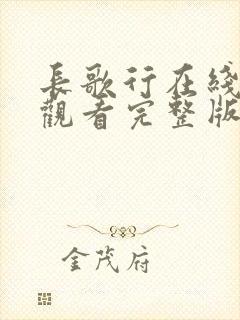 長歌行在綫
觀看完整版
金茂府